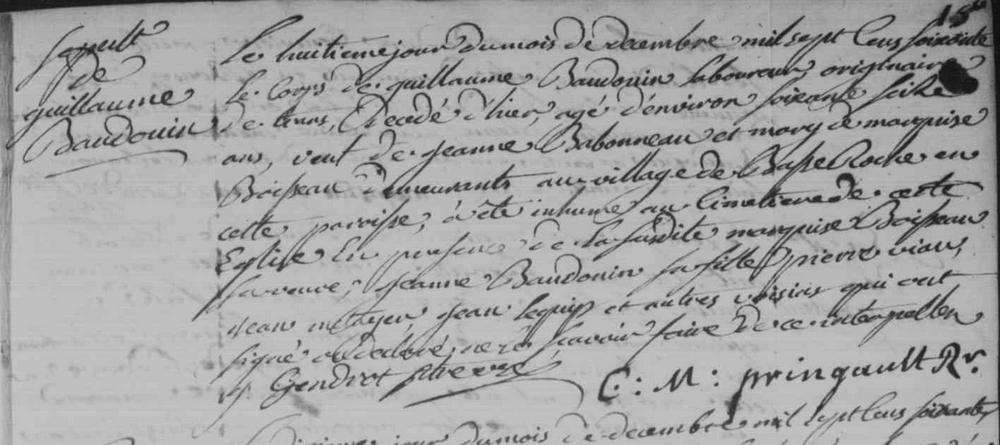 Sepult
de
guillaume
Baudouin
Le huitieme jour du mois de decembre mil sept Cens soixante
le Corps de guillaume Baudouin laboureur, originaire
de decedé d'hier, agé d'environ soixante seize
ans, veuf de jeanne Babonneau et mary de marquise
Boisseau demeurants au village de Basse Roche en
cette paroisse, à été inhumé au Cimetiere de cette
Eglise En presence de la susdite marquise Boisseau
sa veuve, jeanne Baudouin sa fille, pierre viau,
jean metayer, jean et autres voisins qui ont
signé declaré ne scavoir faire de ce interpellés
Gendrot
C: M: pringault Rr.
jour du mois de decembre mil sept Cens soixante